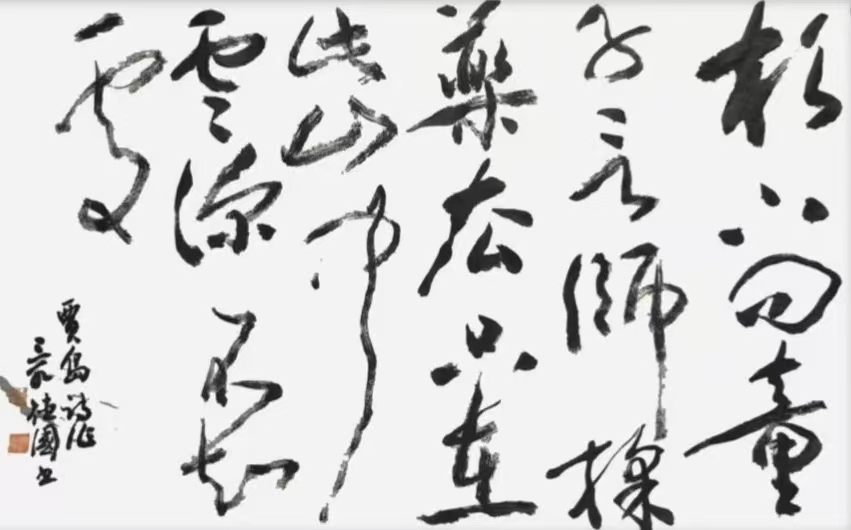 松下問童
子言師採
藥去只在
此山中
雲深不知
處
賈島詩作
德國書